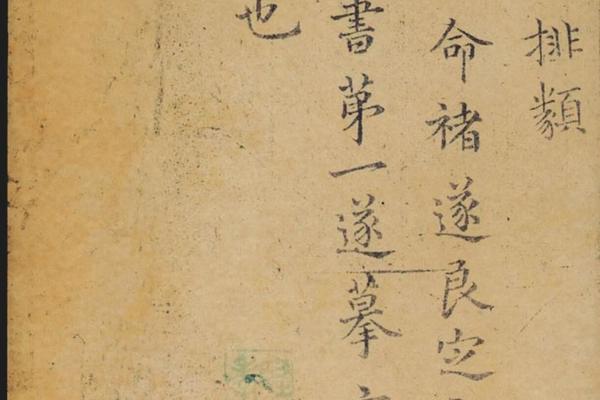 排類
命褚遂良定
書苐一遂摹
也